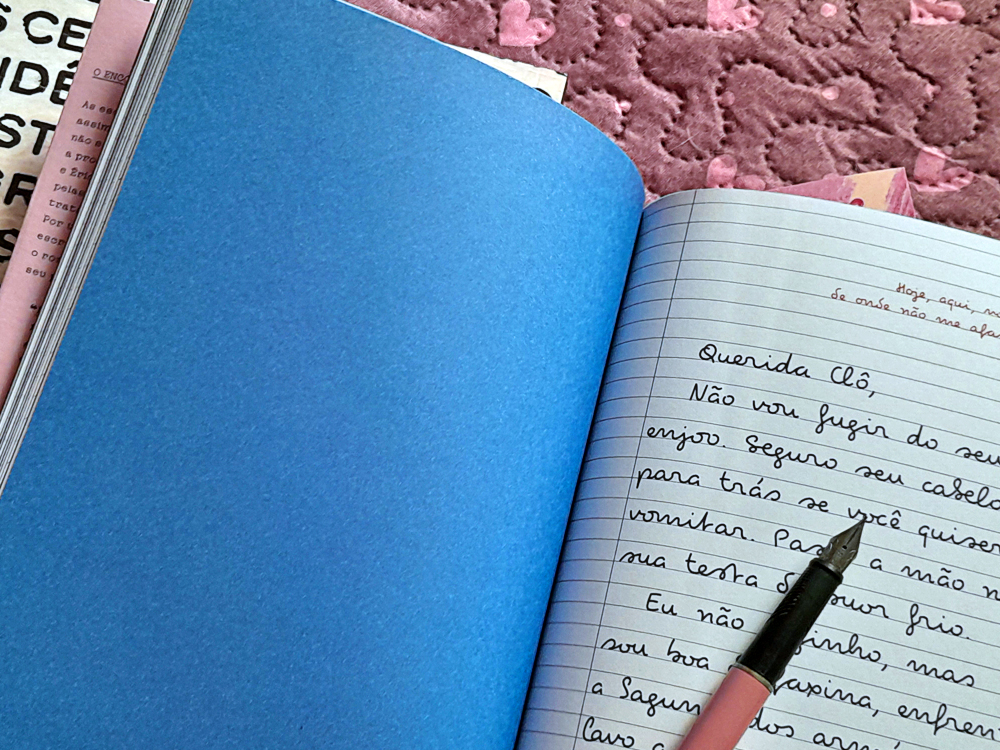 S CE
IDÊ
ST
GR
S
O ENCO
As es
assim
não s
a pro
e Éric
pelas
trat
Por
escr
o ro
seu
Hoje, aqui,
de onde não me afa
Querida Clô,
Não vou fugir do seu
enjoo. Seguro seu cabelo
para trás se você quiser
vomitar. Pas a mão n
sua testa d suor frio.
Eu não zinho, mas
sou boa faxina, enfren
a Sagun dos arm
lavo a